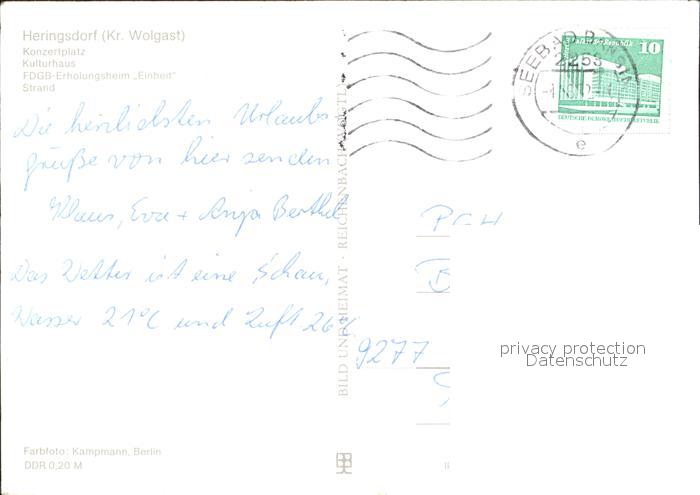 Heringsdorf (Kr. Wolgast)
Konzertplatz
Kulturhaus
FDGB-Erholungsheim „Einheit"
Strand
Die herzlichsten Urlaubs-
grüße von hier senden
Klaus, Eva + Anja Berthel
Das Wetter ist eine Schau,
Wasser 21°C und Luft 26°C
Farbfoto: Kampmann, Berlin
DDR 0,20 M
BILD UND HEIMAT · REICHENBACH
SEEBAD BANSIN
2253
e
10
DEUTSCHE DEMOKRATISCHE REPUBLIK
PGH
B
9277
privacy protection
Datenschutz